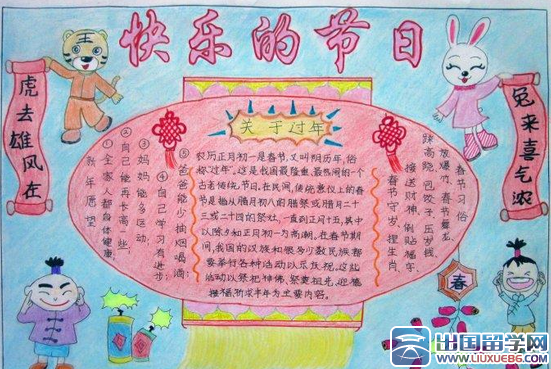 快乐的节日
虎去雄风在
兔来喜气浓
关于过年
农历正月初一是春节,又叫阴历年,俗
称'过年'。这是我国最隆重、最热闹的一个
古老传统节日。在民间,传统意义上的春
节是指从腊月初八的腊祭或腊月二十
三或二十四的祭灶,一直到正月十五,其中
以除夕和正月初一为高潮。在春节期
间,我国的汉族和很多少数民族都
要举行各种活动以示庆祝。这些
活动以祭祀神佛、祭奠祖先、迎禧
接福、祈求丰年为主要内容。
新年愿望
①全家人都身体健康
②自己能再长高一些
③妈妈能多运动
④自己学习有进步
⑤爸爸能少抽烟喝酒
春节习俗
放爆竹、春节舞龙、
踩高跷、包饺子、压岁钱、
接送财神、倒贴福字、
春节守岁、生肖
春
出国留学网
www.liuxue86.com